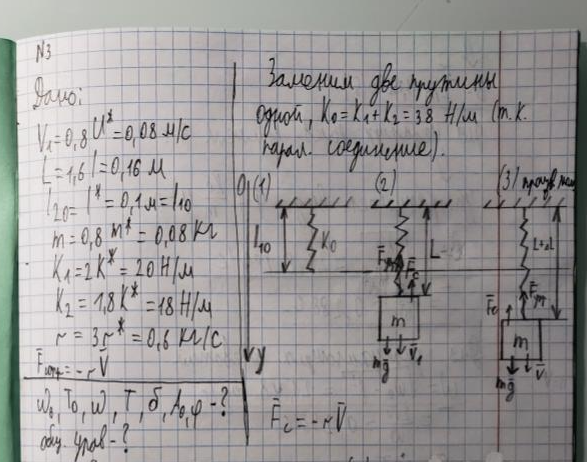 N3
Дано:
V₁=0,8 U*=0,08 м/с
L=1,6 l=0,16 м
l₂₀= l*=0,1м=l₁₀
m=0,8 m*=0,08 кг
K₁=2K*=20 Н/м
K₂=1,8K*=18 Н/м
r=3r*=0,6 кг/с
F̄сопр=-rV̄
ω₀, T₀, ω, T, δ, A₀, φ-?
общ. урав-?
Заменим две пружины
одной, K₀=K₁+K₂=38 Н/м (т.к.
парал. соединение).
0 (1)
(2)
(3)
l₁₀
K₀
L
L+ΔL
F̄c
F̄c
m
m
mḡ
V̄₁
mḡ
V̄
y
F̄c=-rV̄